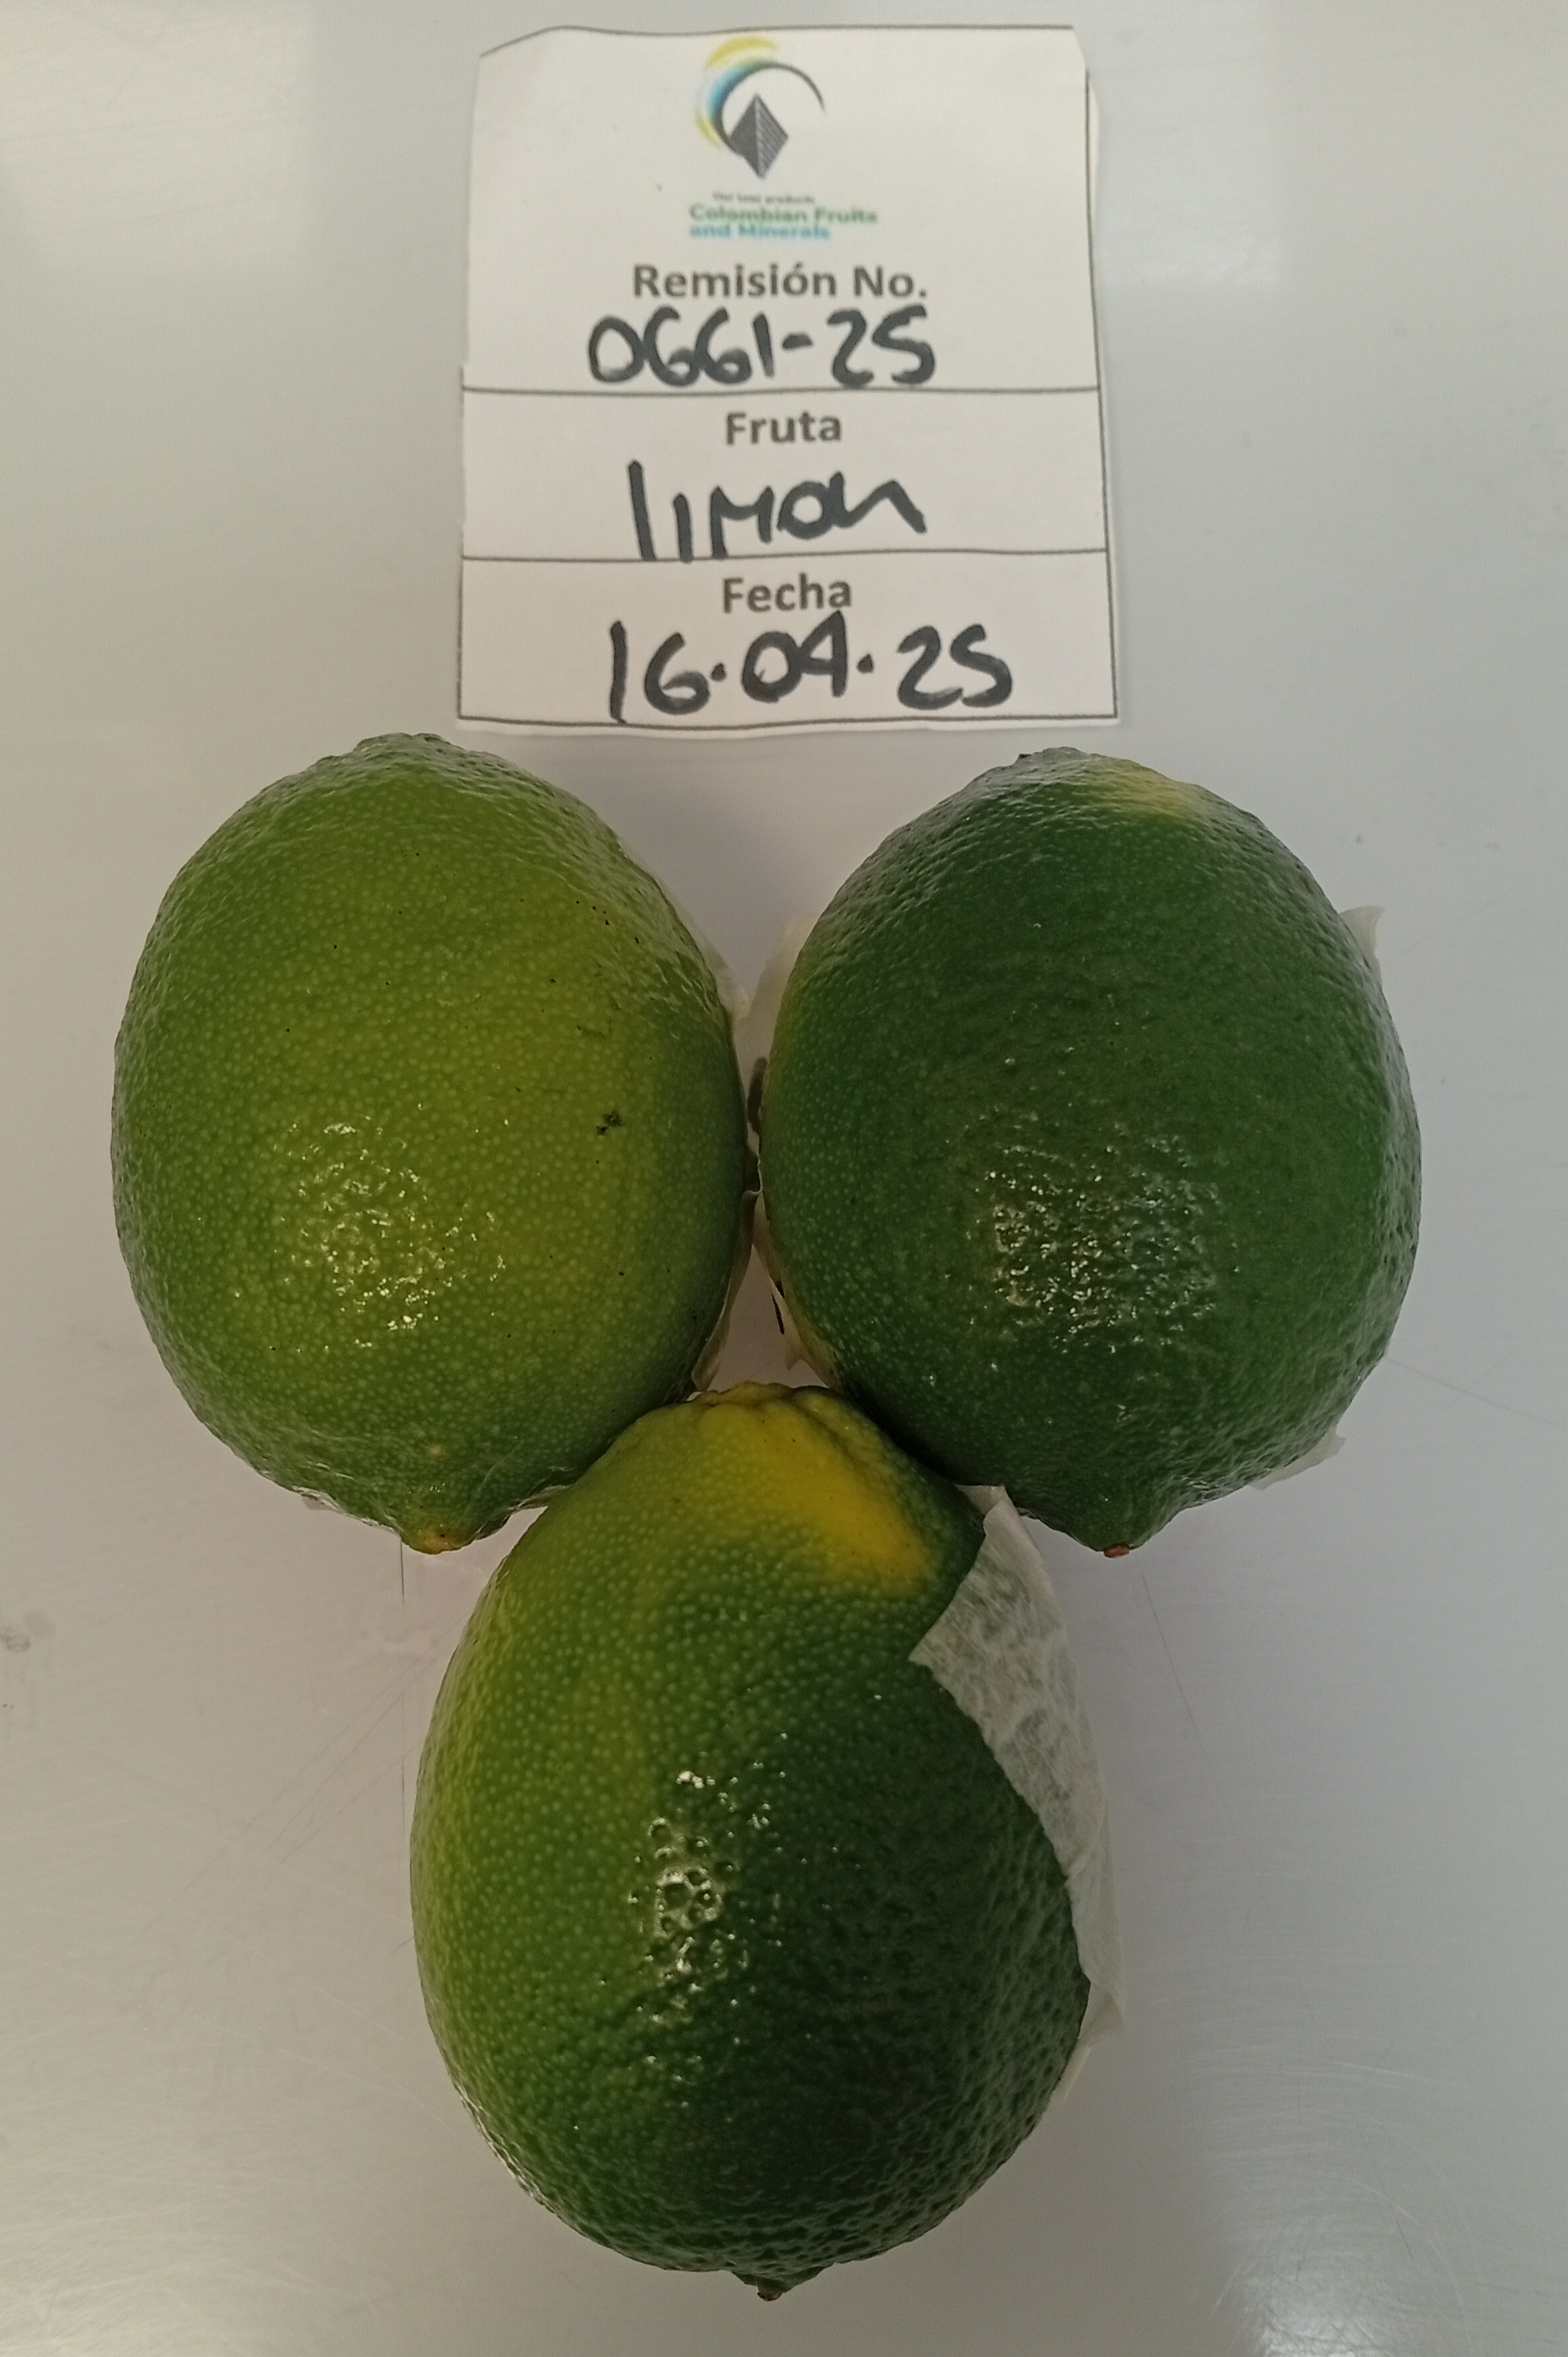 Colombian Fruits
and Minerals
Remisión No.
0661-25
Fruta
limon
Fecha
16.04.25